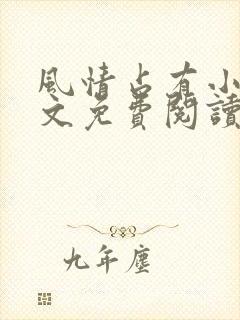 風情占有小
文免費閱讀
九年塵